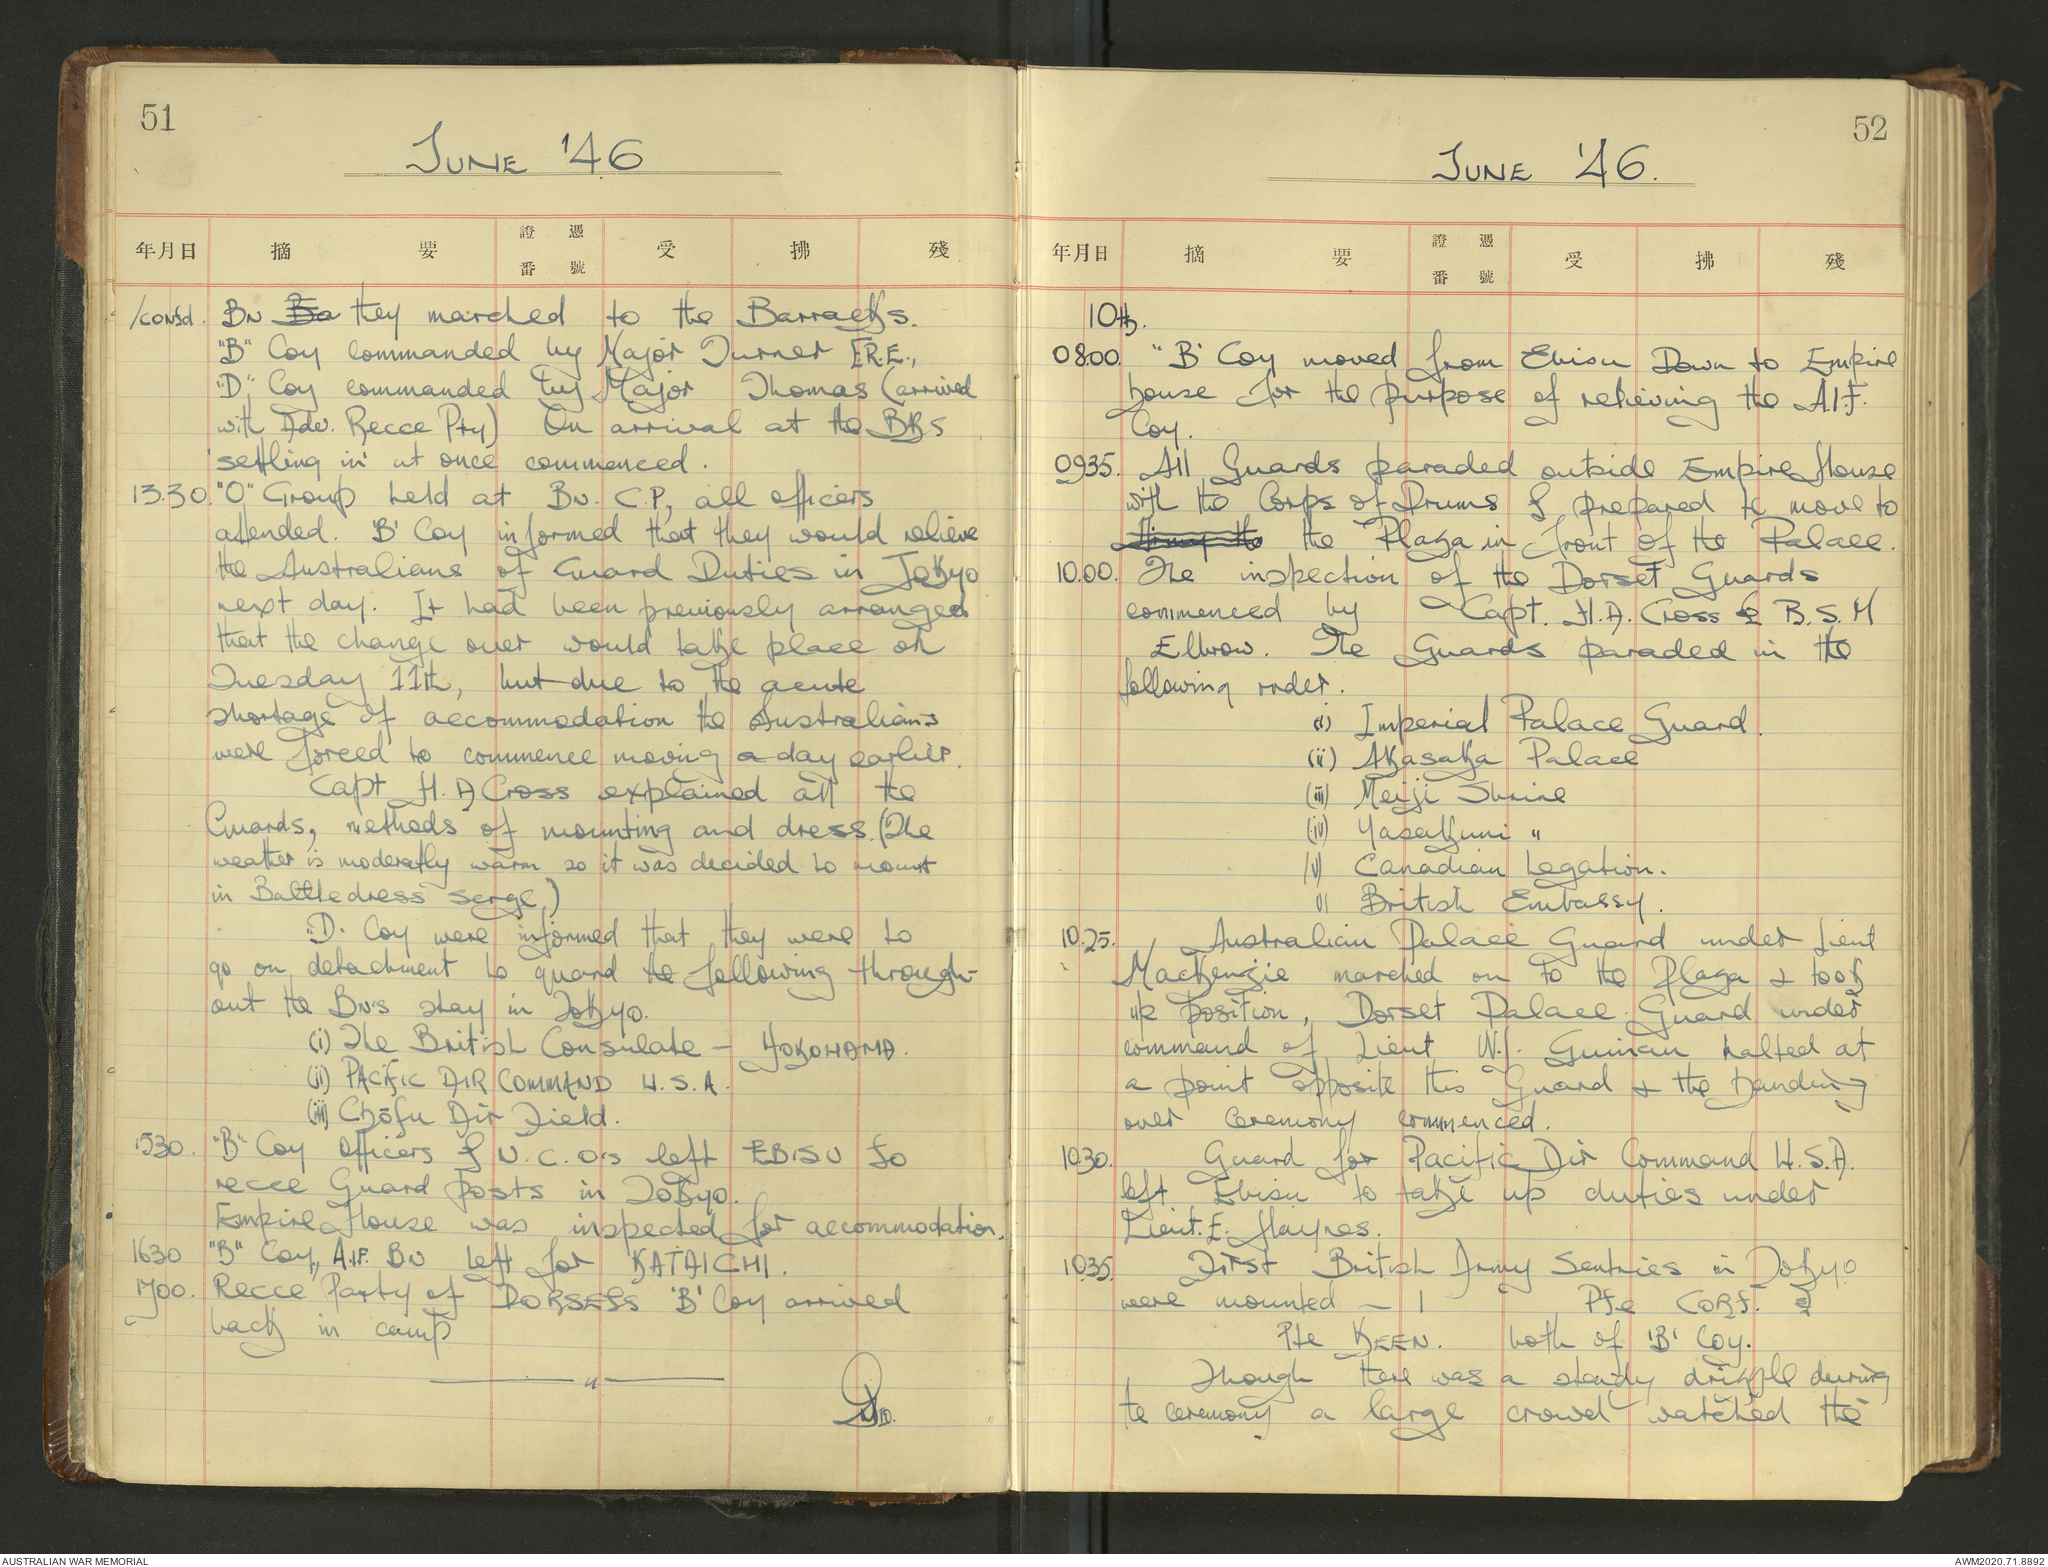 51
JUNE '46
年月日 摘 要 證憑番號 受 拂 殘
/contd. Bn Bo they marched to the Barracks.
"B" Coy commanded by Major Turner F.R.E.,
"D" Coy commanded by Major Thomas (arrived
with Adv. Recce Pty) On arrival at the BKs
'settling in' at once commenced.
13.30. "O" Group held at Bn. C.P., all officers
attended. 'B' Coy informed that they would relieve
the Australians of Guard Duties in Tokyo
next day. It had been previously arranged
that the change over would take place on
Tuesday 11th, but due to the acute
shortage of accommodation the Australians
were forced to commence moving a day earlier.
Capt H.A Cross explained all the
Guards, methods of mounting and dress. (The
weather is moderatly warm so it was decided to mount
in Battledress serge.)
"D. Coy were informed that they were to
go on detachment to guard the following through-
out the Bn's stay in Tokyo.
(i) The British Consulate – YOKOHAMA.
(ii) PACIFIC AIR COMMAND U.S.A.
(iii) Chōfu Air Field.
1530. "B" Coy Officers & N.C.O's left EBISU to
recce Guard posts in Tokyo.
Empire House was inspected for accommodation.
1630 "B" Coy, A.I.F. Bn left for KAIAICHI.
1700. Recce Party of DORSETS 'B' Coy arrived
back in camp
52
JUNE '46.
年月日 摘 要 證憑番號 受 拂 殘
10th.
08.00. "B' Coy moved from Ebisu Down to Empire
house for the purpose of relieving the A.I.F.
Coy.
0935. All Guards paraded outside Empire House
with the Corps of Drums & prepared to move to
the Plaza in front of the Palace.
10.00. The inspection of the Dorset Guards
commenced by Capt. H.A. Cross & B.S.M
Elbrow. The Guards paraded in the
following order.
(i) Imperial Palace Guard.
(ii) Akasaka Palace
(iii) Meiji Shrine
(iv) Yasakuni "
(v) Canadian Legation.
vi British Embassy.
10.25. Australian Palace Guard under Lieut
MacKenzie marched on to the Plaza & took
up position, Dorset Palace Guard under
command of Lieut W.J. Guinan halted at
a point opposite this Guard & the handing
over ceremony commenced.
10.30. Guard for Pacific Air Command U.S.A.
left Ebisu to take up duties under
Lieut. E. Haynes.
10.35. First British Army Sentries in Tokyo
were mounted – 1 Pte CORF. &
Pte KEEN. both of 'B' Coy.
Though there was a steady drizzle during
te ceremony a large crowd watched the
AUSTRALIAN WAR MEMORIAL
AWM2020.71.8892